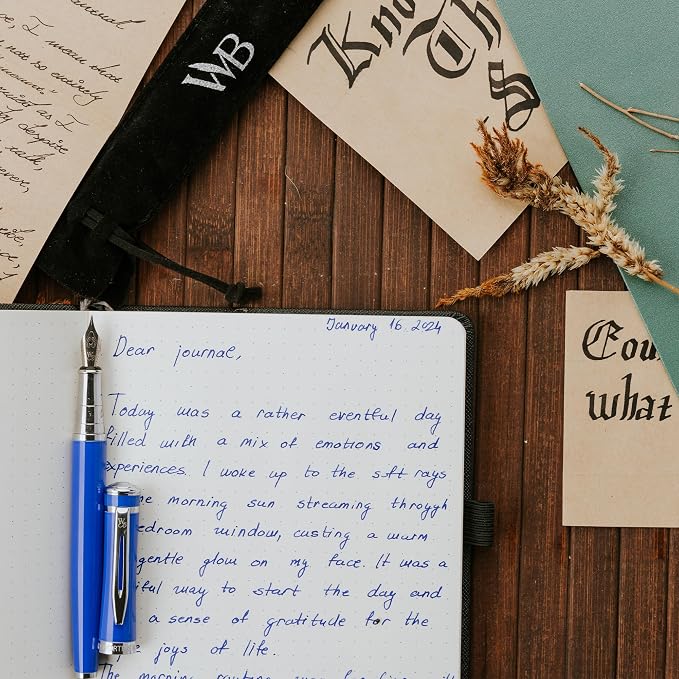 I mean that
not so entirely
as I
despite
talk,
WB
Kno
Th
S
Cou
what
January 16 2024
Dear journal,
Today was a rather eventful day
filled with a mix of emotions and
experiences. I woke up to the soft rays
morning sun streaming through
edroom window, casting a warm
gentle glow on my face. It was a
iful way to start the day and
a sense of gratitude for the
joys of life.
The morning routine was